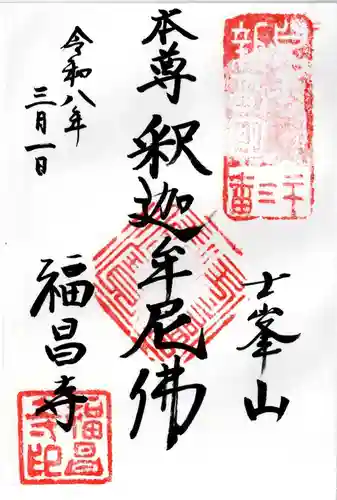 士峯山
本尊 釈迦牟尼佛
令和八年
三月一日
福昌寺
福昌
寺印